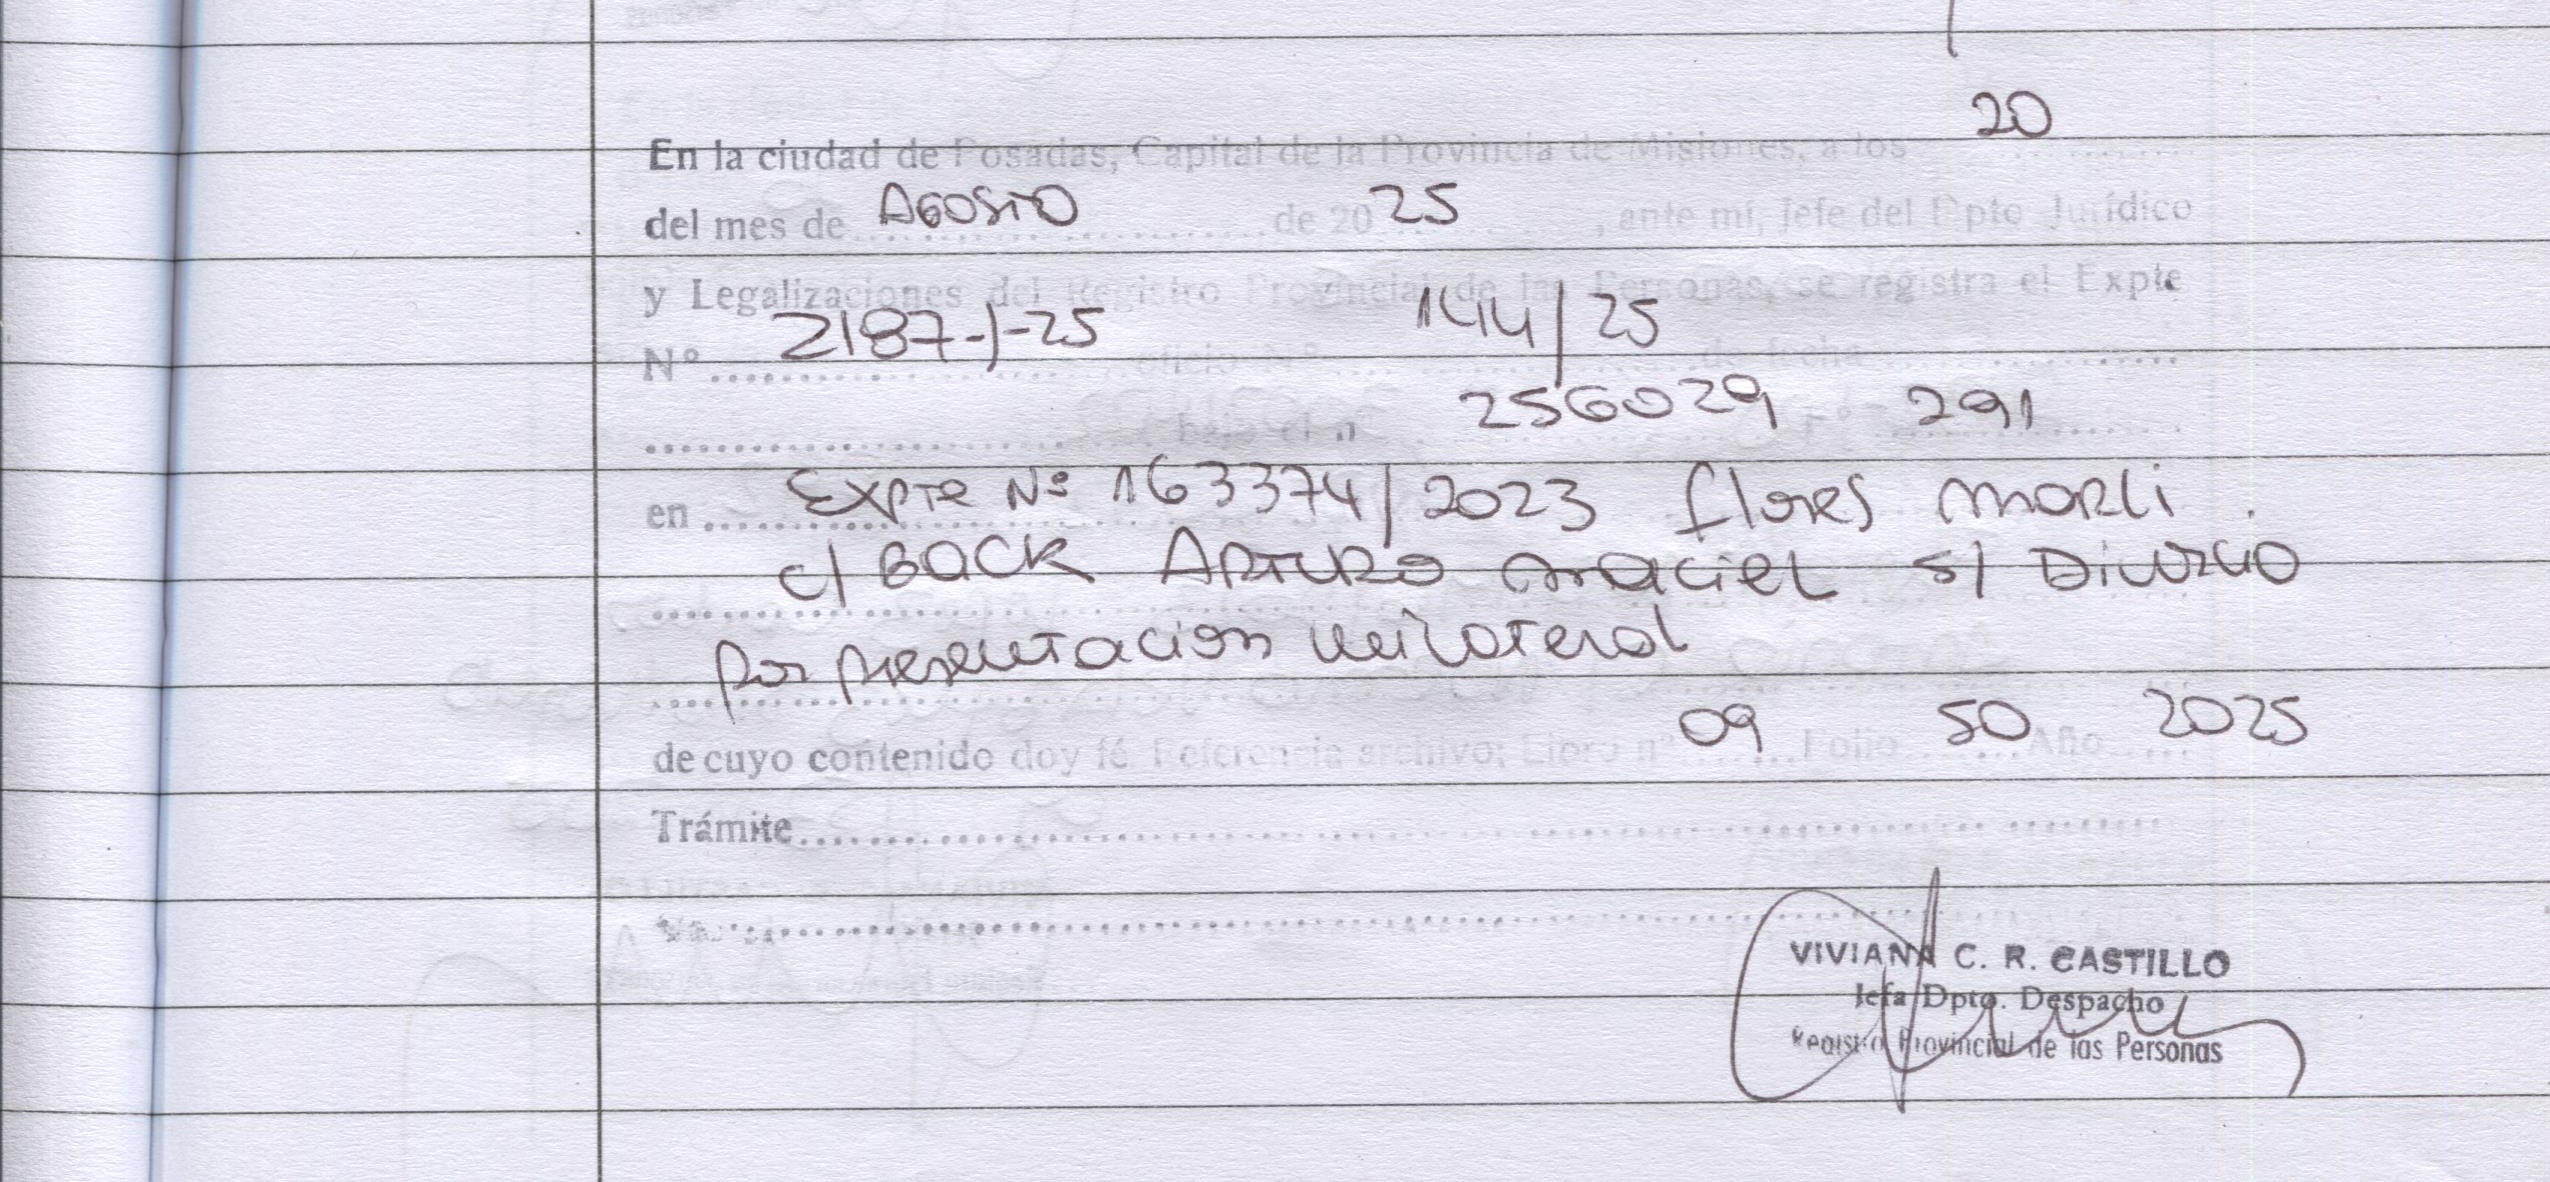 20
En la ciudad de Posadas, Capital de la Provincia de Misiones, a los ..........
del mes de Agosto de 20 25, ante mí, Jefe del Dpto Jurídico
y Legalizaciones del Registro Provincial de las Personas, se registra el Expte
Nº 2187-J-25 oficio nº 1414/25 de fecha
bajo el nº 256029 Fº 291
en Expte Nº 163374/2023 flores Marli.
c/ BACK ARTURO maciel s/ Divorcio
por presentacion unilateral
de cuyo contenido doy fé. Referencia archivo; Libro nº 09 Folio 50 Año 2025
Trámite
VIVIANA C. R. CASTILLO
Jefa Dpto. Despacho
Registro Provincial de las Personas